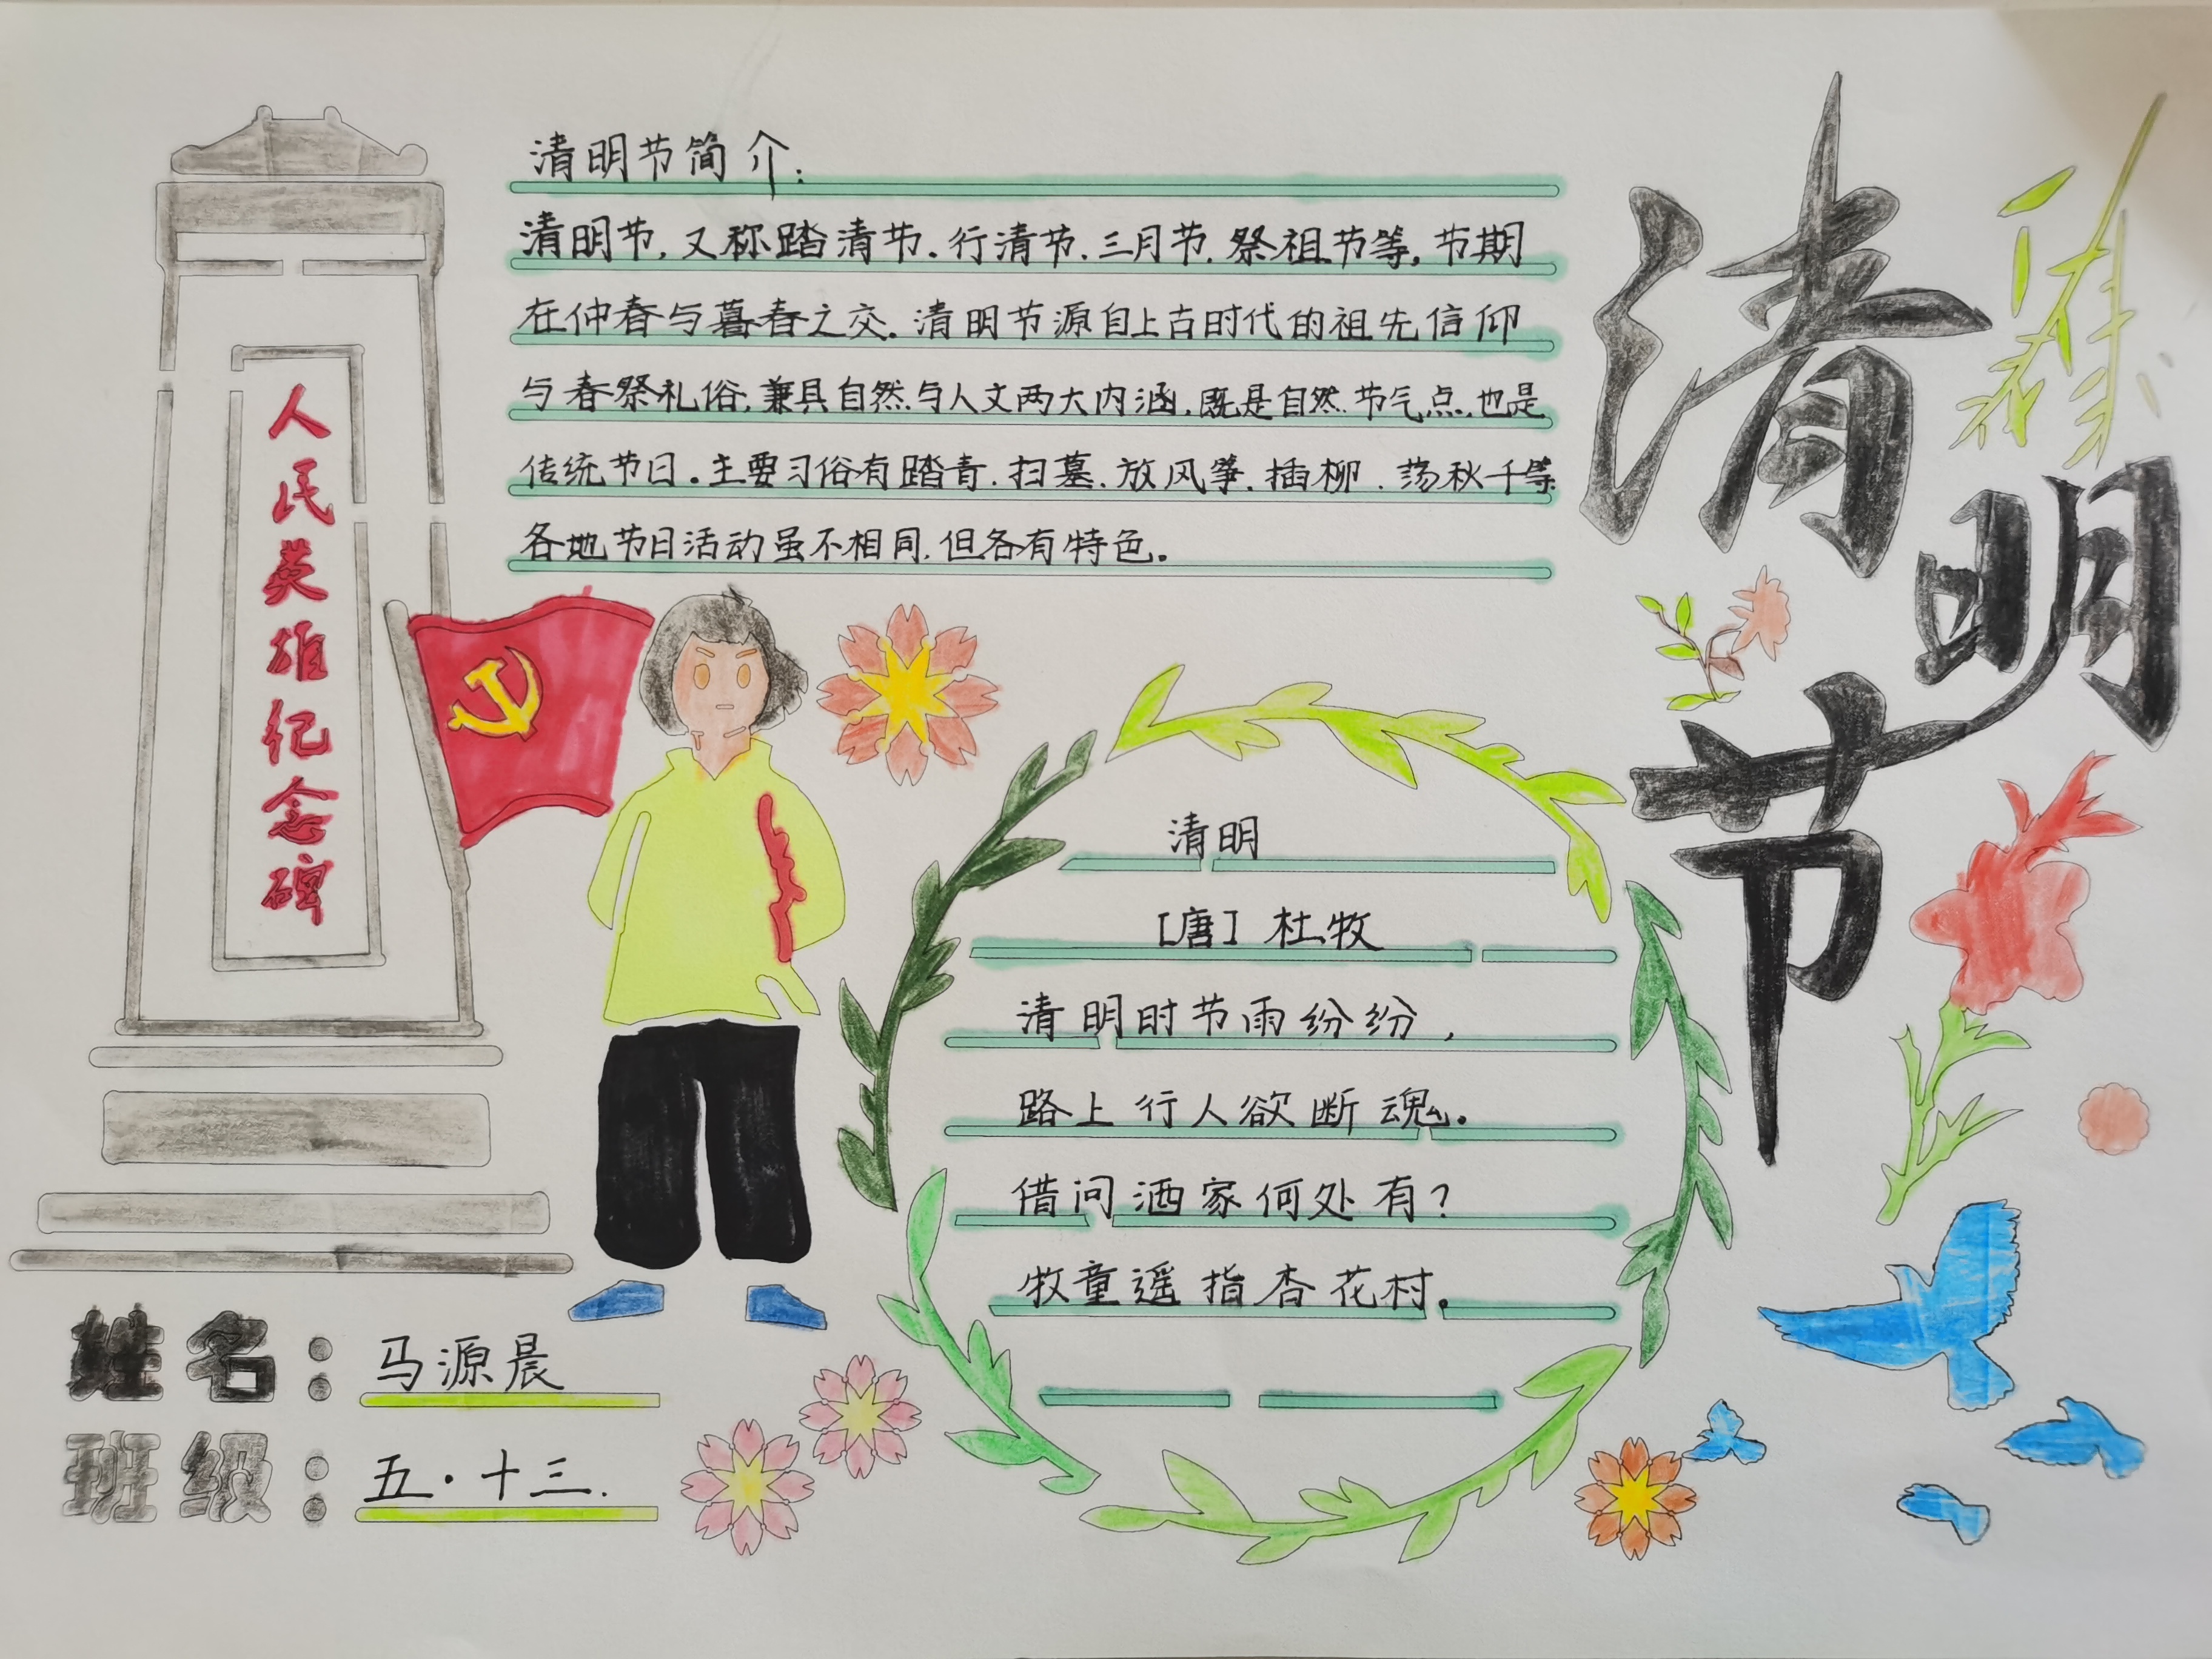 清明节简介:
清明节,又称踏清节.行清节.三月节.祭祖节等,节期
在仲春与暮春之交.清明节源自上古时代的祖先信仰
与春祭礼俗,兼具自然与人文两大内涵,既是自然节气点,也是
传统节日.主要习俗有踏青.扫墓.放风筝.插柳.荡秋千等.
各地节日活动虽不相同,但各有特色。
清明节
人民英雄纪念碑
清明
[唐] 杜牧
清明时节雨纷纷,
路上行人欲断魂.
借问洒家何处有?
牧童遥指杏花村.
姓名:马源晨
班级:五·十三.